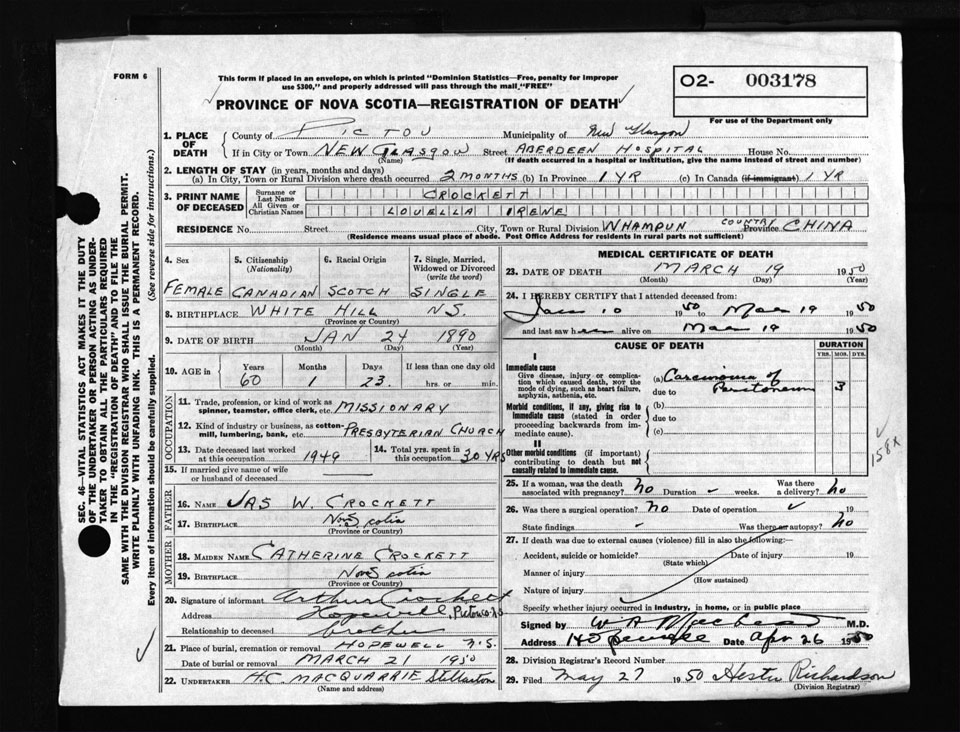 FORM 6
This form if placed in an envelope, on which is printed "Dominion Statistics—Free, penalty for improper
use $300," and properly addressed will pass through the mail "FREE"
PROVINCE OF NOVA SCOTIA—REGISTRATION OF DEATH
O2- 003178
For use of the Department only
1. PLACE OF DEATH
County of PICTOU Municipality of New Glasgow
If in City or Town NEW GLASGOW Street ABERDEEN HOSPITAL House No.
(Name) (If death occurred in a hospital or institution, give the name instead of street and number)
2. LENGTH OF STAY (in years, months and days)
(a) In City, Town or Rural Division where death occurred 2 MONTHS (b) In Province 1 YR (c) In Canada (if immigrant) 1 YR
3. PRINT NAME OF DECEASED
Surname or Last Name CROCKETT
All Given or Christian Names LOUELLA IRENE
RESIDENCE No. Street City, Town or Rural Division WHAMPUN COUNTRY Province CHINA
(Residence means usual place of abode. Post Office Address for residents in rural parts not sufficient)
4. Sex FEMALE
5. Citizenship (Nationality) CANADIAN
6. Racial Origin SCOTCH
7. Single, Married, Widowed or Divorced (write the word) SINGLE
8. BIRTHPLACE WHITE HILL N.S.
(Province or Country)
9. DATE OF BIRTH JAN 24 1890
(Month) (Day) (Year)
10. AGE in Years 60 Months 1 Days 23 If less than one day old hrs. or min.
OCCUPATION
11. Trade, profession, or kind of work as spinner, teamster, office clerk, etc. MISSIONARY
12. Kind of industry or business, as cotton-mill, lumbering, bank, etc. PRESBYTERIAN CHURCH
13. Date deceased last worked at this occupation 1949
14. Total yrs. spent in this occupation 30 YRS
15. If married give name of wife or husband of deceased
FATHER
16. NAME JAS W. CROCKETT
17. BIRTHPLACE Nova Scotia
(Province or Country)
MOTHER
18. MAIDEN NAME CATHERINE CROCKETT
19. BIRTHPLACE Nova Scotia
(Province or Country)
20. Signature of informant Arthur Crockett
Address Hopewell, Pictou Co. N.S.
Relationship to deceased brother
21. Place of burial, cremation or removal HOPEWELL N.S.
Date of burial or removal MARCH 21 1950
22. UNDERTAKER H.C. MACQUARRIE Stellarton
(Name and address)
MEDICAL CERTIFICATE OF DEATH
23. DATE OF DEATH MARCH 19 1950
(Month) (Day) (Year)
24. I HEREBY CERTIFY that I attended deceased from:
Jan 10 1950 to Mar 19 1950
and last saw her alive on Mar 19 1950
CAUSE OF DEATH
DURATION
YRS. MOS. DYS.
I
Immediate cause
Give disease, injury or complication which caused death, NOT the mode of dying, such as heart failure, asphyxia, asthenia, etc.
(a) Carcinoma of
due to Peritoneum 3
Morbid conditions, if any, giving rise to immediate cause (stated in order proceeding backwards from immediate cause).
(b)
due to
(c)
II
Other morbid conditions (if important) contributing to death but not causally related to immediate cause.
158X
25. If a woman, was the death associated with pregnancy? no Duration weeks. Was there a delivery? no
26. Was there a surgical operation? no Date of operation 19
State findings Was there an autopsy? no
27. If death was due to external causes (violence) fill in also the following:—
Accident, suicide or homicide? Date of injury 19
(State which)
Manner of injury
(How sustained)
Nature of injury
Specify whether injury occurred in industry, in home, or in public place
Signed by M.D.
Address Date Apr 26 1950
28. Division Registrar's Record Number
29. Filed May 27 1950 Hester Richardson
(Division Registrar)
SEC. 46—VITAL STATISTICS ACT MAKES IT THE DUTY
OF THE UNDERTAKER OR PERSON ACTING AS UNDER-
TAKER TO OBTAIN ALL THE PARTICULARS REQUIRED
IN THE "REGISTRATION OF DEATH" AND TO FILE THE
SAME WITH THE DIVISION REGISTRAR WHO SHALL ISSUE THE BURIAL PERMIT.
WRITE PLAINLY WITH UNFADING INK. THIS IS A PERMANENT RECORD.
Every item of information should be carefully supplied. (See reverse side for instructions.)